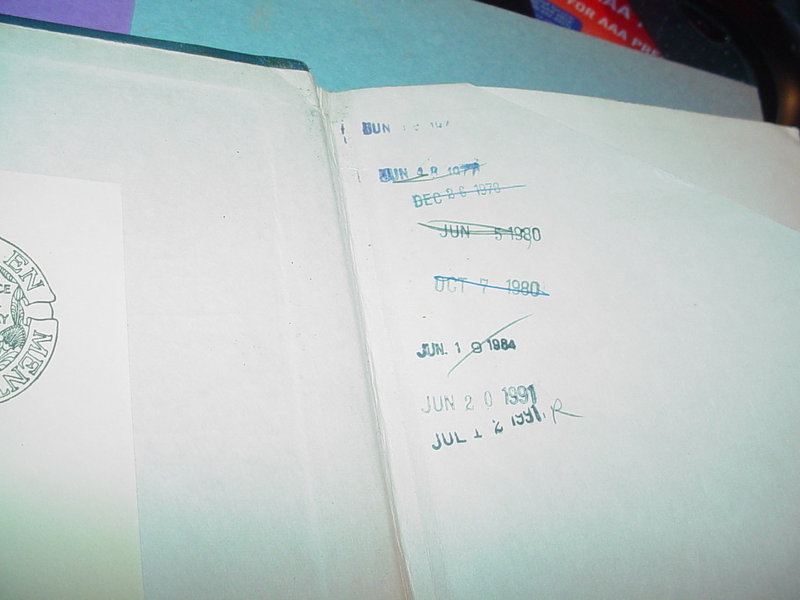 AA
FOR AAA PRE
EN
MEN
CE
Y
JUN
JUN 18 1977
DEC 26 1978
JUN 5 1980
OCT 7 1980
JUN. 19 1984
JUN 20 1991
JUL 12 1991 R